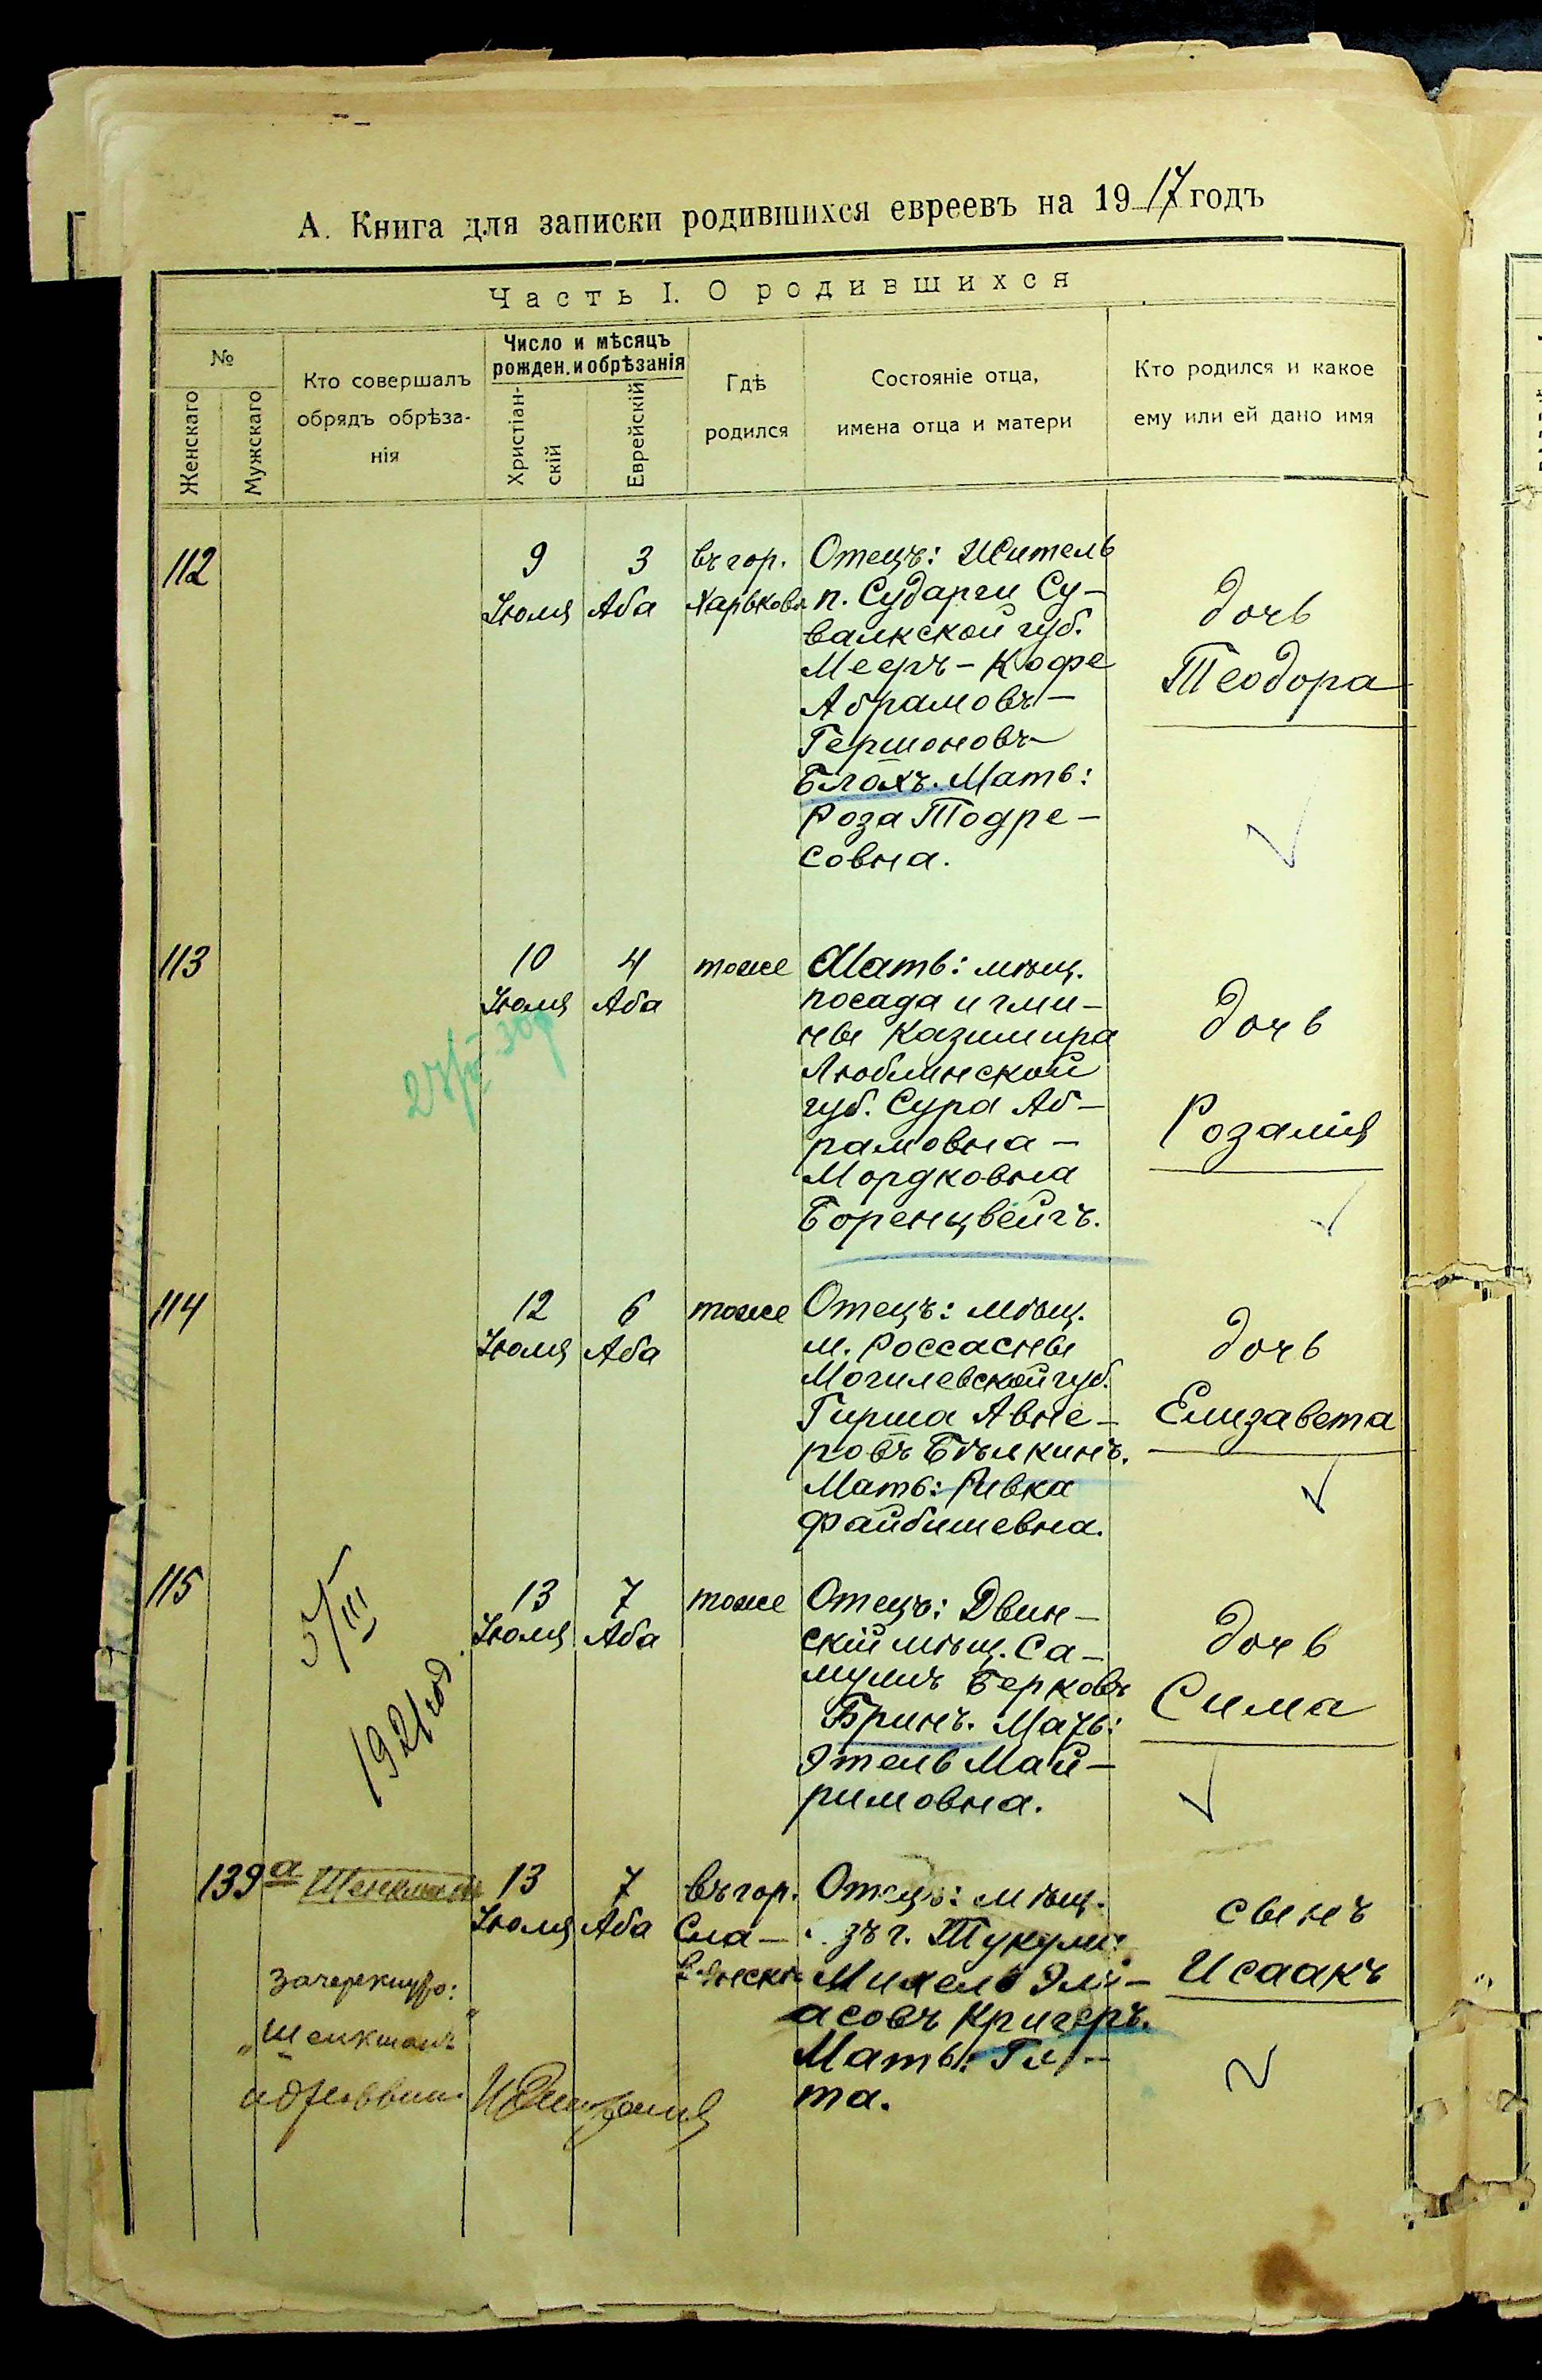 А. Книга для записки родившихся евреевъ на 1917 годъ
Часть I. О родившихся
№
Женскаго
Мужскаго
Кто совершалъ
обрядъ обрѣза-
нія
Число и мѣсяцъ
рожден. и обрѣзанія
Христіан-
скій
Еврейскій
Гдѣ
родился
Состояніе отца,
имена отца и матери
Кто родился и какое
ему или ей дано имя
112
9
Іюля
3
Аба
въ гор.
Харьковѣ
Отецъ: Житель
п. Сударги Су-
валкской губ.
Мееръ-Кофе
Абрамовъ-
Гершоновъ
Блохъ. Мать:
Роза Тодре-
совна.
дочь
Теодора
113
10
Іюля
4
Аба
тоже
Мать: мѣщ.
посада и гми-
ны Казимира
Люблинской
губ. Сура Аб-
рамовна-
Мордковна
Боренцвейгъ.
дочь
Розалія
114
12
Іюля
6
Аба
тоже
Отецъ: мѣщ.
м. Россасны
Могилевской губ.
Гирша Авне-
ровъ Бѣлкинъ.
Мать: Ривка
Файбишевна.
дочь
Елизавета
115
5/III
1921 год.
13
Іюля
7
Аба
тоже
Отецъ: Двин-
скій мѣщ. Са-
муилъ Берковъ
Бринъ. Мать:
Этель Май-
римовна.
дочь
Сима
139а
13
Іюля
7
Аба
въ гор.
Сла-
вянскѣ
Отецъ: мѣщ.
зъ г. Тукумъ
Михель Эль-
асовъ Кригеръ.
Мать: Ги-
та.
сынъ
Исаакъ
зачеркнуто: